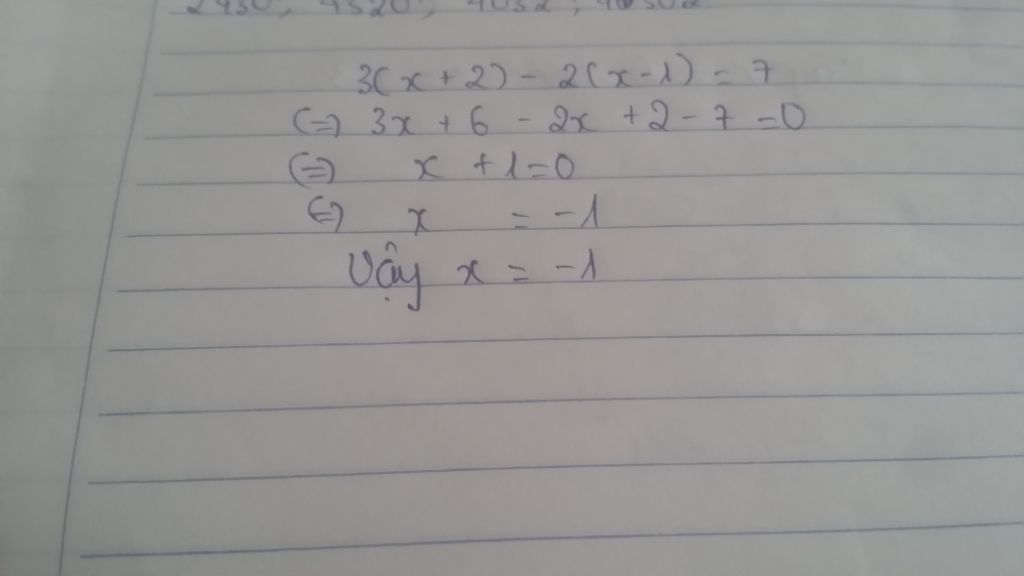 3(x + 2) - 2(x - 1) = 7
(=) 3x + 6 - 2x + 2 - 7 = 0
(=) x + 1 = 0
(=) x = -1
Vậy x = -1